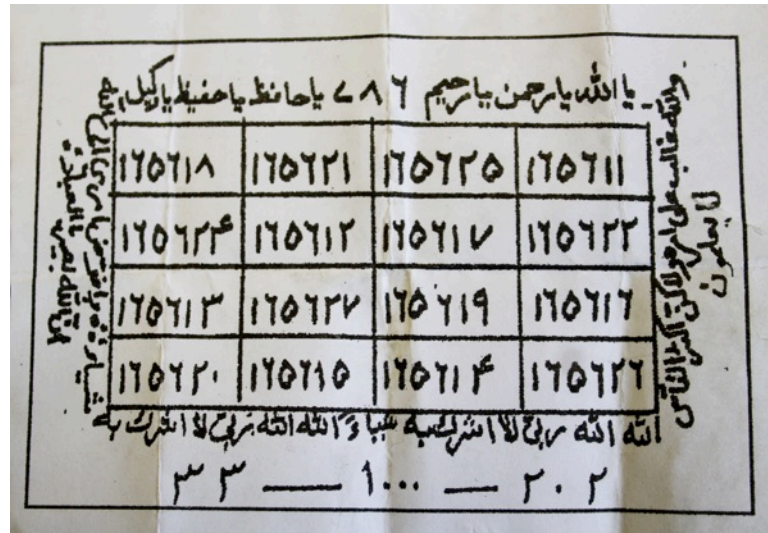 یا الله یارحمن یارحیم ۷۸۶ یاحافظ یاحفیظ
والله غالب علی امره ولاکن اکثر الناس
لا یعلمون
۱۶۵۶۱۱ ۱۶۵۶۲۵ ۱۶۵۶۲۱ ۱۶۵۶۱۸
۱۶۵۶۲۲ ۱۶۵۶۱۷ ۱۶۵۶۱۲ ۱۶۵۶۲۴
۱۶۵۶۱۶ ۱۶۵۶۱۹ ۱۶۵۶۲۷ ۱۶۵۶۱۳
۱۶۵۶۲۶ ۱۶۵۶۱۴ ۱۶۵۶۱۵ ۱۶۵۶۲۰
الله الله ربی لا اشرك به شیاءً الله الله ربی لا اشرك به
۲۰۲ — ۱۰۰۰ — ۳۳